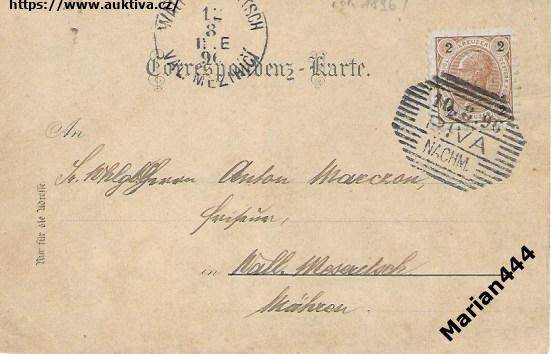 https://www.auktiva.cz/
1896!
WAL TSCH
12
8
11.E
96
VAL. MEZIŘIČÍ
Correspondenz-Karte.
2 KREUZER 2
10.8.96
RIVA
NACHM.
An
Sr. Wohlgb. Herrn Anton Marcron,
Friseur,
in Wall. Meseritsch
Mähren.
Nur für die Adresse
Marian444